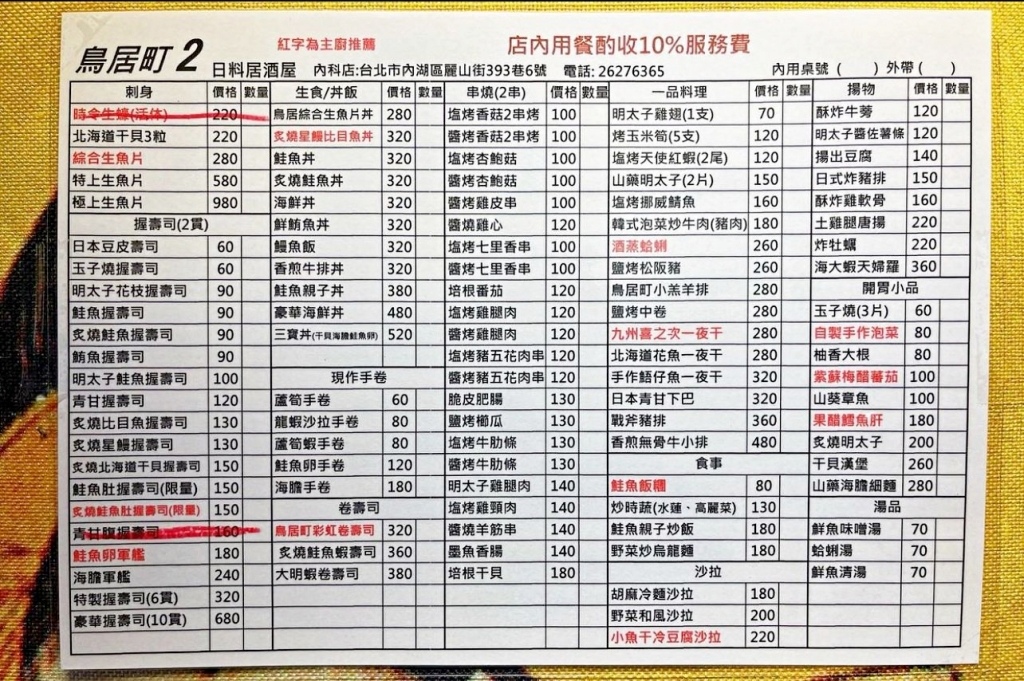 鳥居町 2 日料居酒屋
紅字為主廚推薦
店內用餐酌收10%服務費
內科店:台北市內湖區麗山街393巷6號 電話: 26276365
內用桌號 ( ) 外帶 ( )
刺身 價格 數量
時令生蠔(活体) 220
北海道干貝3粒 220
綜合生魚片 280
特上生魚片 580
極上生魚片 980
握壽司(2貫)
日本豆皮壽司 60
玉子燒握壽司 60
明太子花枝握壽司 90
鮭魚握壽司 90
炙燒鮭魚握壽司 90
鮪魚握壽司 90
明太子鮭魚握壽司 100
青甘握壽司 120
炙燒比目魚握壽司 130
炙燒星鰻握壽司 130
炙燒北海道干貝握壽司 150
鮭魚肚握壽司(限量) 150
炙燒鮭魚肚握壽司(限量) 150
青甘腹握壽司 160
鮭魚卵軍艦 180
海膽軍艦 240
特製握壽司(6貫) 320
豪華握壽司(10貫) 680
生食/丼飯 價格 數量
鳥居綜合生魚片丼 280
炙燒星鰻比目魚丼 320
鮭魚丼 320
炙燒鮭魚丼 320
海鮮丼 320
鮮鮪魚丼 320
鰻魚飯 320
香煎牛排丼 320
鮭魚親子丼 380
豪華海鮮丼 480
三寶丼(干貝海膽鮭魚卵) 520
現作手卷
蘆筍手卷 60
龍蝦沙拉手卷 80
蘆筍蝦手卷 80
鮭魚卵手卷 120
海膽手卷 180
卷壽司
鳥居町彩虹卷壽司 320
炙燒鮭魚蝦壽司 360
大明蝦卷壽司 380
串燒(2串) 價格 數量
塩烤香菇2串烤 100
醬烤香菇2串烤 100
塩烤杏鮑菇 100
醬烤杏鮑菇 100
醬烤雞皮串 100
醬燒雞心 120
塩烤七里香串 100
醬烤七里香串 100
培根番茄 120
塩烤雞腿肉 120
醬烤雞腿肉 120
塩烤豬五花肉串 120
醬烤豬五花肉串 120
脆皮肥腸 130
塩烤櫛瓜 130
塩烤牛肋條 130
醬烤牛肋條 130
明太子雞腿肉 140
塩烤雞頸肉 140
醬燒羊筋串 140
墨魚香腸 140
培根干貝 180
一品料理 價格 數量
明太子雞翅(1支) 70
烤玉米筍(5支) 120
塩烤天使紅蝦(2尾) 120
山藥明太子(2片) 150
塩烤挪威鯖魚 160
韓式泡菜炒牛肉(豬肉) 180
酒蒸蛤蜊 260
鹽烤松阪豬 260
鳥居町小羔羊排 280
鹽烤中卷 280
九州喜之次一夜干 280
北海道花魚一夜干 280
手作鯃仔魚一夜干 320
日本青甘下巴 320
戰斧豬排 360
香煎無骨牛小排 480
食事
鮭魚飯糰 80
炒時蔬(水蓮、高麗菜) 130
鮭魚親子炒飯 180
野菜炒烏龍麵 180
沙拉
胡麻冷麵沙拉 180
野菜和風沙拉 200
小魚干冷豆腐沙拉 220
揚物 價格 數量
酥炸牛蒡 120
明太子醬佐薯條 120
揚出豆腐 140
日式炸豬排 150
酥炸雞軟骨 160
土雞腿唐揚 220
炸牡蠣 220
海大蝦天婦羅 360
開胃小品
玉子燒(3片) 60
自製手作泡菜 80
柚香大根 80
紫蘇梅醋蕃茄 100
山葵章魚 100
果醋鱈魚肝 180
炙燒明太子 200
干貝漢堡 260
山藥海膽細麵 280
湯品
鮮魚味噌湯 70
蛤蜊湯 70
鮮魚清湯 70